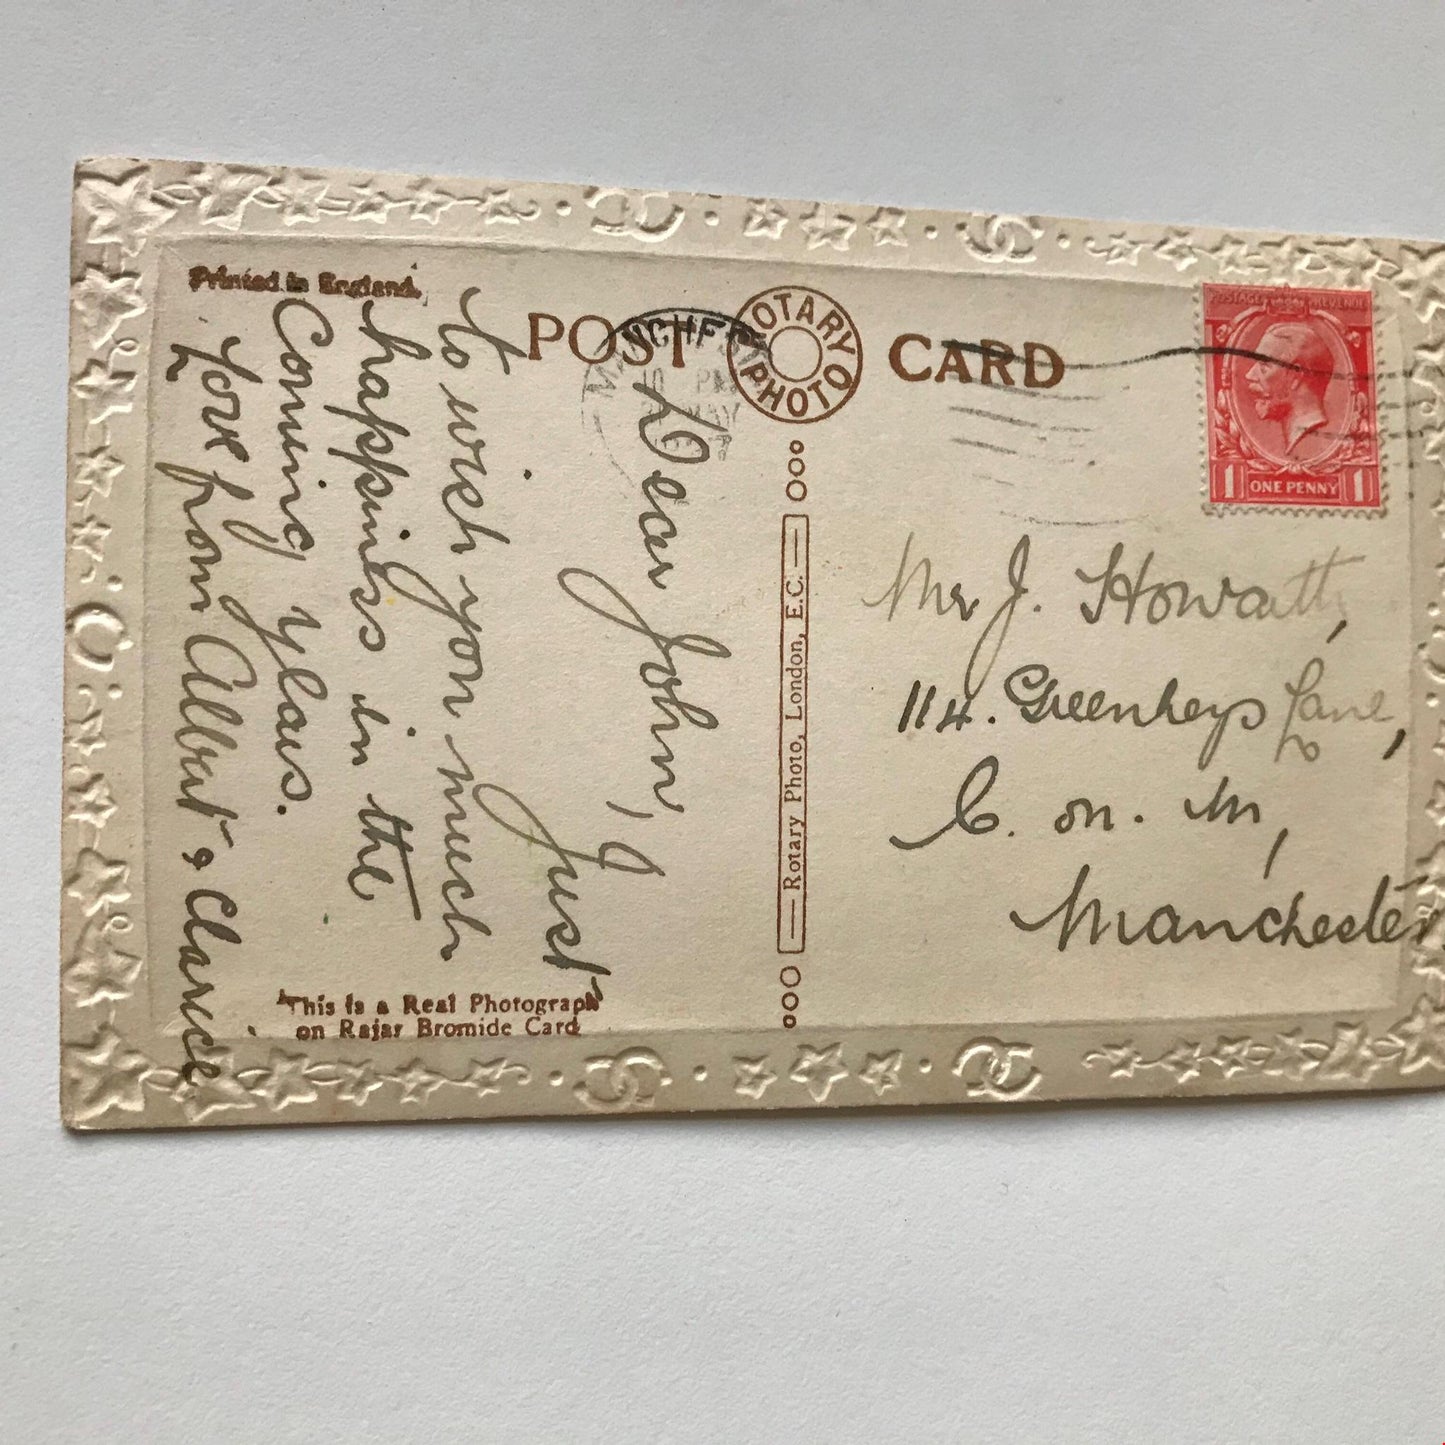 Printed in England.
POST CARD
ROTARY PHOTO
MANCHESTER
10 PM
MAY
POSTAGE REVENUE
1 ONE PENNY 1
Dear John,
Just
to wish you much
happiness in the
Coming years.
Love from Albert & Clarice
This is a Real Photograph
on Rajar Bromide Card
Rotary Photo, London, E.C.
Mr J. Howaitt,
114. Greenheys Lane,
C. on. M,
Manchester